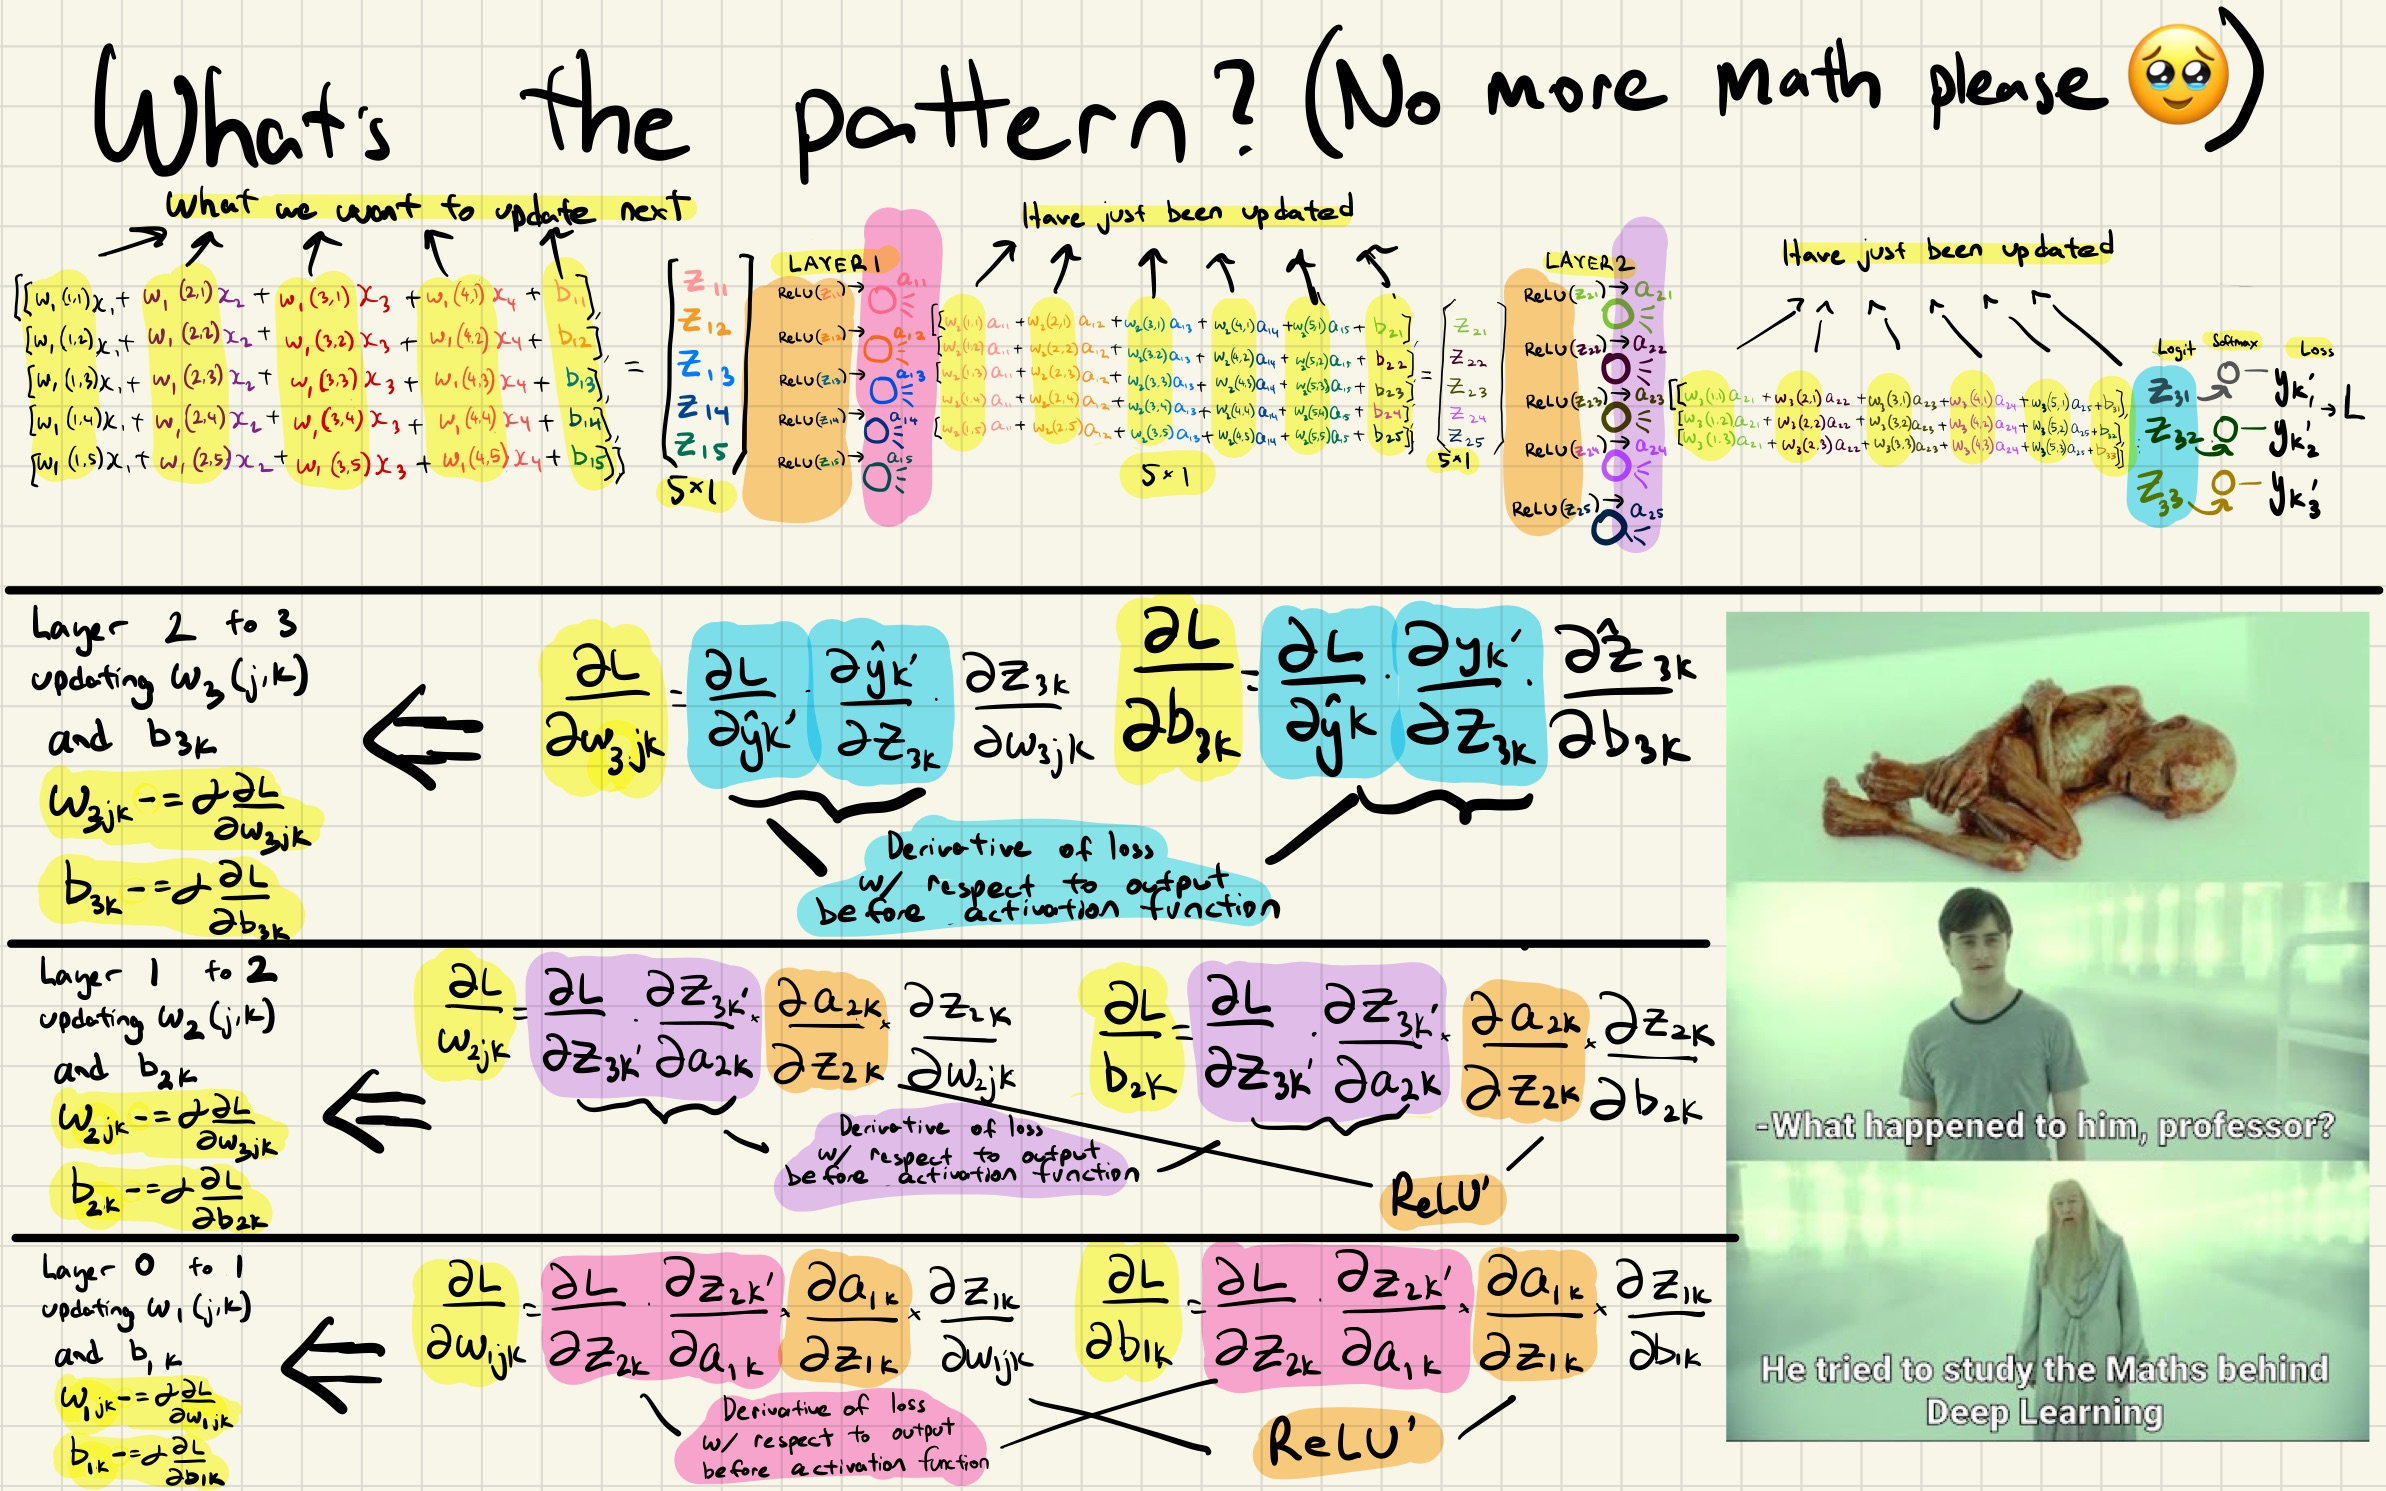 What's the pattern? (No more Math please 🥹)
What we want to update next
Have just been updated
Have just been updated
[[w₁(1,1)x₁ + w₁(2,1)x₂ + w₁(3,1)x₃ + w₁(4,1)x₄ + b₁₁],
[w₁(1,2)x₁ + w₁(2,2)x₂ + w₁(3,2)x₃ + w₁(4,2)x₄ + b₁₂],
[w₁(1,3)x₁ + w₁(2,3)x₂ + w₁(3,3)x₃ + w₁(4,3)x₄ + b₁₃],
[w₁(1,4)x₁ + w₁(2,4)x₂ + w₁(3,4)x₃ + w₁(4,4)x₄ + b₁₄],
[w₁(1,5)x₁ + w₁(2,5)x₂ + w₁(3,5)x₃ + w₁(4,5)x₄ + b₁₅]]
=
z₁₁
z₁₂
z₁₃
z₁₄
z₁₅
5×1
LAYER 1
ReLU(z₁₁) → a₁₁
ReLU(z₁₂) → a₁₂
ReLU(z₁₃) → a₁₃
ReLU(z₁₄) → a₁₄
ReLU(z₁₅) → a₁₅
[[w₂(1,1)a₁₁ + w₂(2,1)a₁₂ + w₂(3,1)a₁₃ + w₂(4,1)a₁₄ + w₂(5,1)a₁₅ + b₂₁]
[w₂(1,2)a₁₁ + w₂(2,2)a₁₂ + w₂(3,2)a₁₃ + w₂(4,2)a₁₄ + w₂(5,2)a₁₅ + b₂₂]
[w₂(1,3)a₁₁ + w₂(2,3)a₁₂ + w₂(3,3)a₁₃ + w₂(4,3)a₁₄ + w₂(5,3)a₁₅ + b₂₃]
[w₂(1,4)a₁₁ + w₂(2,4)a₁₂ + w₂(3,4)a₁₃ + w₂(4,4)a₁₄ + w₂(5,4)a₁₅ + b₂₄]
[w₂(1,5)a₁₁ + w₂(2,5)a₁₂ + w₂(3,5)a₁₃ + w₂(4,5)a₁₄ + w₂(5,5)a₁₅ + b₂₅]]
5×1
=
z₂₁
z₂₂
z₂₃
z₂₄
z₂₅
5×1
LAYER 2
ReLU(z₂₁) → a₂₁
ReLU(z₂₂) → a₂₂
ReLU(z₂₃) → a₂₃
ReLU(z₂₄) → a₂₄
ReLU(z₂₅) → a₂₅
[[w₃(1,1)a₂₁ + w₃(2,1)a₂₂ + w₃(3,1)a₂₃ + w₃(4,1)a₂₄ + w₃(5,1)a₂₅ + b₃₁],
[w₃(1,2)a₂₁ + w₃(2,2)a₂₂ + w₃(3,2)a₂₃ + w₃(4,2)a₂₄ + w₃(5,2)a₂₅ + b₃₂],
[w₃(1,3)a₂₁ + w₃(2,3)a₂₂ + w₃(3,3)a₂₃ + w₃(4,3)a₂₄ + w₃(5,3)a₂₅ + b₃₃]]
Logit Softmax Loss
z₃₁ yk₁' → L
z₃₂ yk₂'
z₃₃ yk₃'
Layer 2 to 3
updating w₃(j,k)
and b₃k
w₃jk -= α ∂L/∂w₃jk
b₃k -= α ∂L/∂b₃k
∂L/∂w₃jk = ∂L/∂ŷk' · ∂ŷk'/∂z₃k · ∂z₃k/∂w₃jk
∂L/∂b₃k = ∂L/∂ŷk · ∂yk'/∂z₃k · ∂ẑ₃k/∂b₃k
Derivative of loss
w/ respect to output
before activation function
Layer 1 to 2
updating w₂(j,k)
and b₂k
w₂jk -= α ∂L/∂w₃jk
b₂k -= α ∂L/∂b₂k
∂L/w₂jk = ∂L/∂z₃k' · ∂z₃k'/∂a₂k × ∂a₂k/∂z₂k × ∂z₂k/∂w₂jk
∂L/b₂k = ∂L/∂z₃k' · ∂z₃k'/∂a₂k × ∂a₂k/∂z₂k × ∂z₂k/∂b₂k
Derivative of loss
w/ respect to output
before activation function
ReLU'
Layer 0 to 1
updating w₁(j,k)
and b₁k
w₁jk -= α ∂L/∂w₁jk
b₁k -= α ∂L/∂b₁k
∂L/∂w₁jk = ∂L/∂z₂k · ∂z₂k'/∂a₁k × ∂a₁k/∂z₁k × ∂z₁k/∂w₁jk
∂L/∂b₁k = ∂L/∂z₂k · ∂z₂k'/∂a₁k × ∂a₁k/∂z₁k × ∂z₁k/∂b₁k
Derivative of loss
w/ respect to output
before activation function
ReLU'
-What happened to him, professor?
He tried to study the Maths behind
Deep Learning